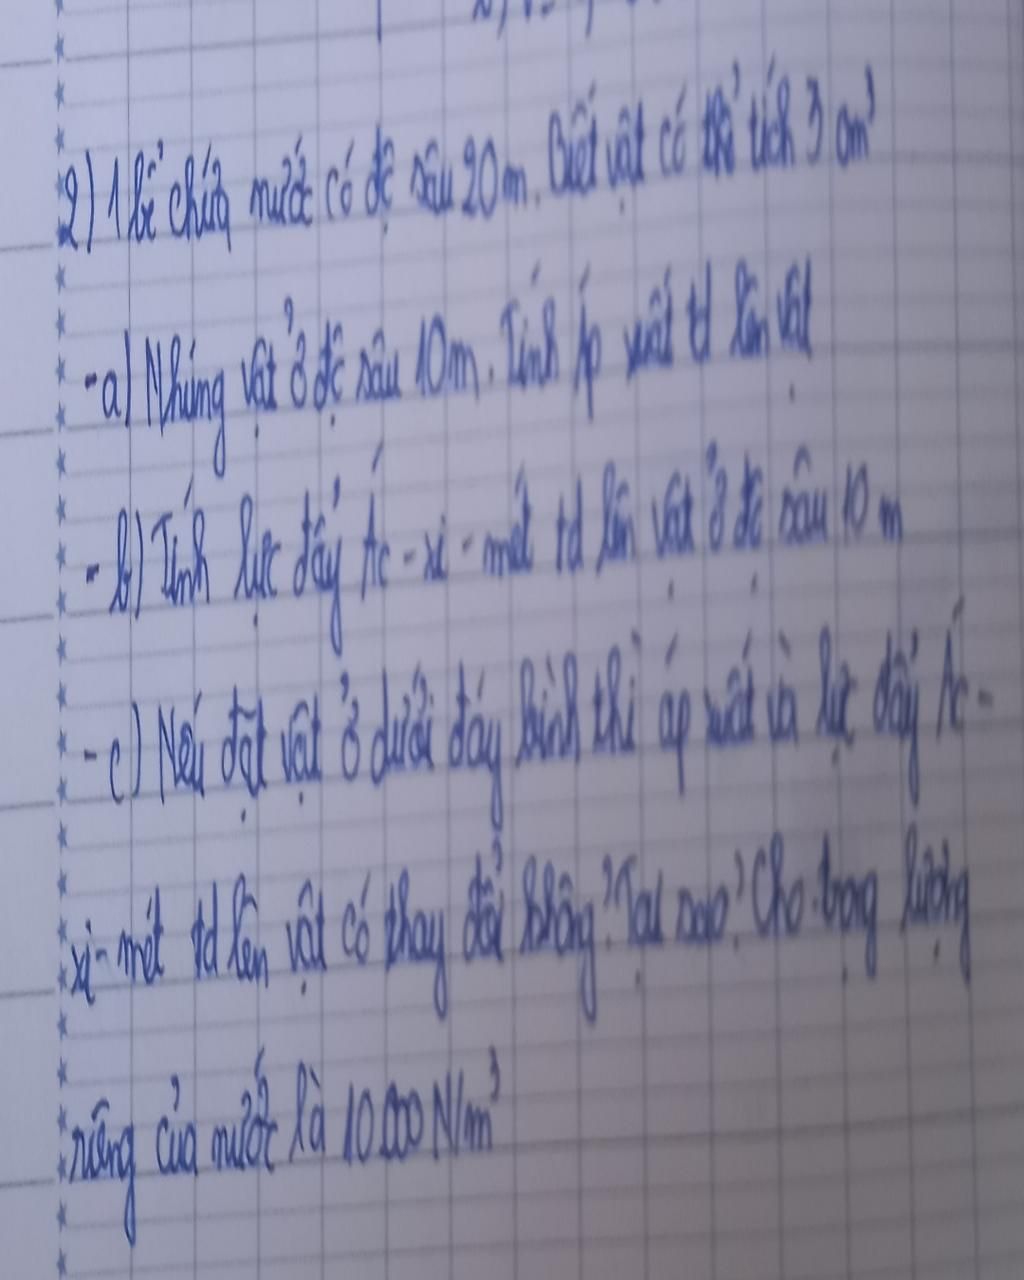 2) 1 bể chứa nước có độ sâu 20m. Biết vật có thể tích 3 cm³
-a) Nhúng vật ở độ sâu 10m. Tính áp suất td lên vật
-b) Tính lực đẩy Ác-xi-mét td lên vật ở độ sâu 10 m
-c) Nếu đặt vật ở dưới đáy bình thì áp suất và lực đẩy Ác-
xi-mét td lên vật có thay đổi không? Tại sao? Cho trọng lượng
riêng của nước là 10.000 N/m³